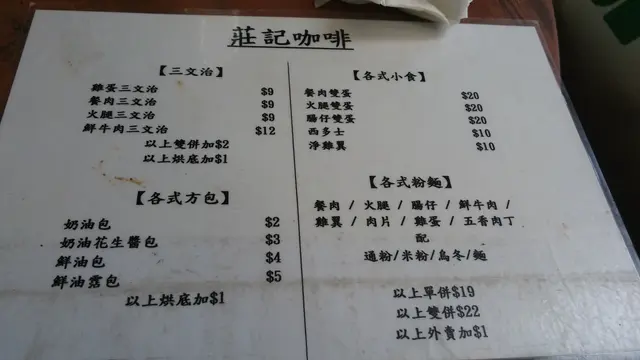 莊記咖啡
【三文治】
雞蛋三文治 $9
餐肉三文治 $9
火腿三文治 $9
鮮牛肉三文治 $12
以上雙併加$2
以上烘底加$1
【各式方包】
奶油包 $2
奶油花生醬包 $3
鮮油包 $4
鮮油占包 $5
以上烘底加$1
【各式小食】
餐肉雙蛋 $20
火腿雙蛋 $20
腸仔雙蛋 $20
西多士 $10
淨雞翼 $10
【各式粉麵】
餐肉 / 火腿 / 腸仔 / 鮮牛肉 /
雞翼 / 肉片 / 雞蛋 / 五香肉丁
配
通粉/米粉/烏冬/麵
以上單併$19
以上雙併$22
以上外賣加$1